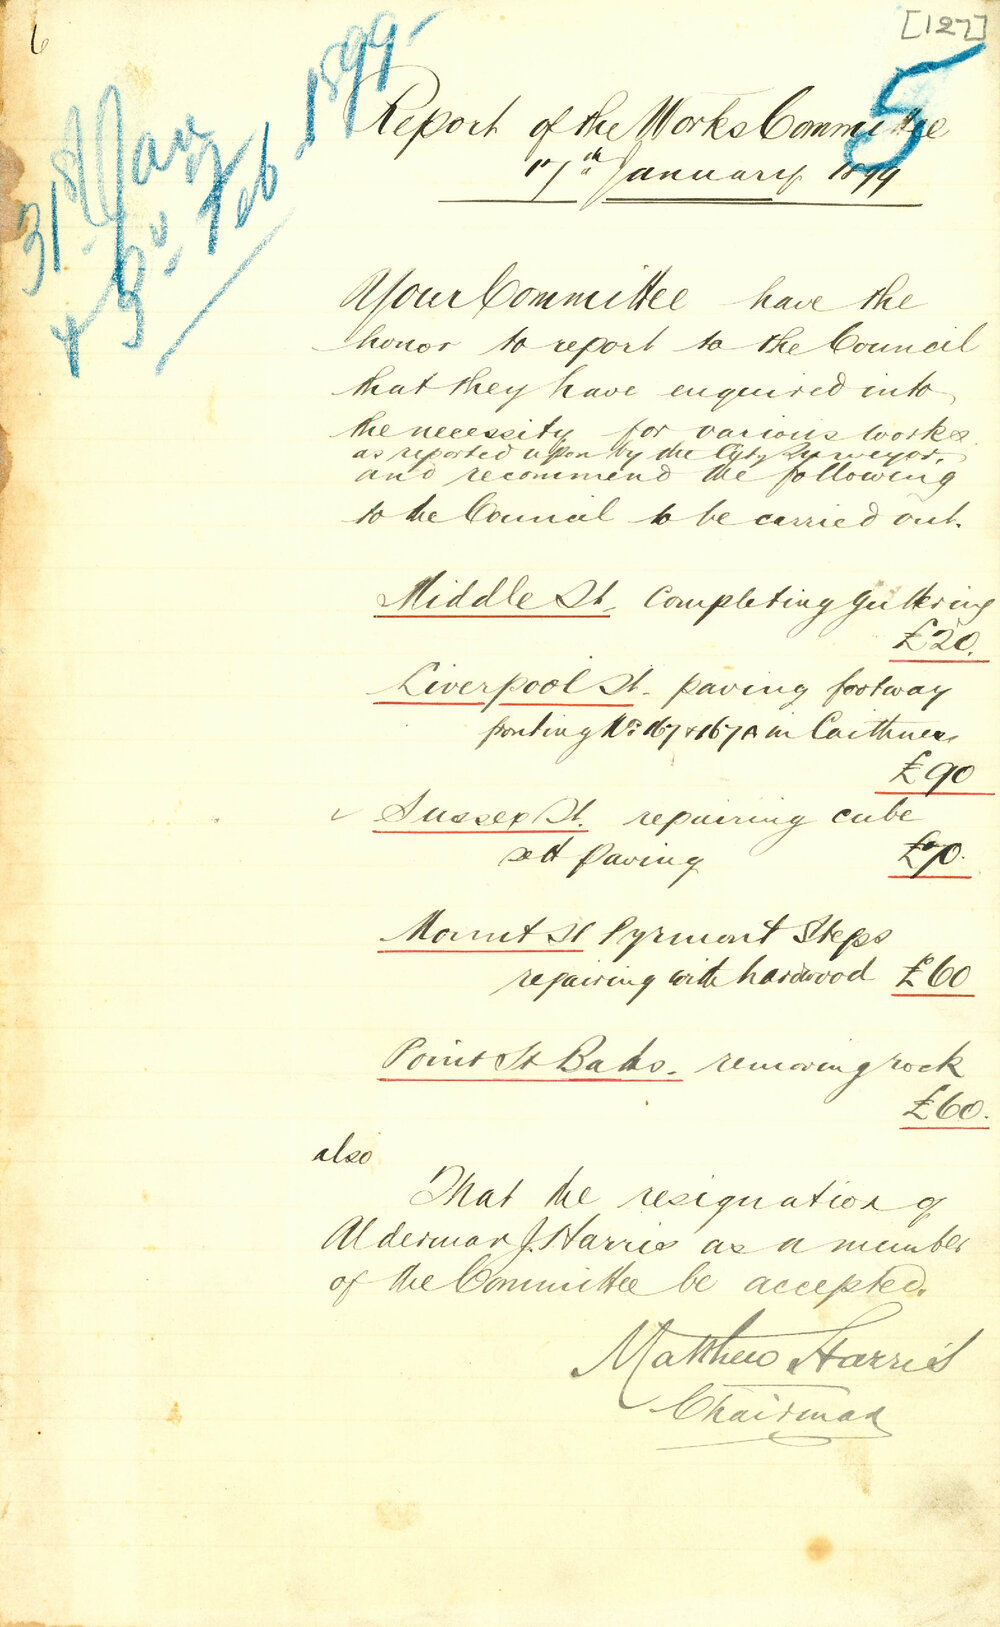 6
[127]
5
31st Jan
+ 3rd Feb 1899-
Report of the Works Committee
17th January 1899
Your Committee have the
honor to report to the Council
that they have enquired into
the necessity for various works
as reported upon by the City Surveyor,
and recommend the following
to the Council to be carried out.
Middle St. Completing guttering
£20.
Liverpool St. paving footway
fronting Nos 167 & 167A in Caithness
£90
✓ Sussex St. repairing cube
sett paving £70.
Mount St Pyrmont Steps
repairing with hardwood £60
Point St Baths. removing rock
£60.
also
That the resignation of
Alderman J. Harris as a member
of the Committee be accepted.
Matthew Harris
Chairman